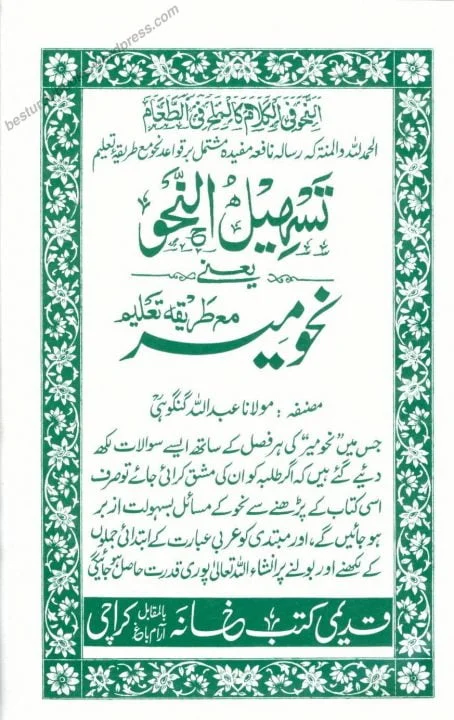 النحو فی الکلام کالملح فی الطعام
الحمد للہ والمنۃ کہ رسالہ نافعہ مفیدہ مشتمل بر قواعد نحو مع طریقۂ تعلیم
تسہیل النحو
یعنی
نحو میر مع طریقہ تعلیم
مصنفہ : مولانا عبداللہ گنگوہیؒ
جس میں ”نحو میر“ کی ہر فصل کے ساتھ ایسے سوالات لکھ
دیئے گئے ہیں کہ اگر طلبہ کو ان کی مشق کرائی جائے تو صرف
اسی کتاب کے پڑھنے سے نحو کے مسائل بسہولت ازبر
ہو جائیں گے، اور مبتدی کو عربی عبارت کے ابتدائی جملوں
کے لکھنے اور بولنے پر انشاء اللہ تعالیٰ پوری قدرت حاصل ہو جائیگی
قدیمی کتب خانہ بالمقابل آرام باغ کراچی